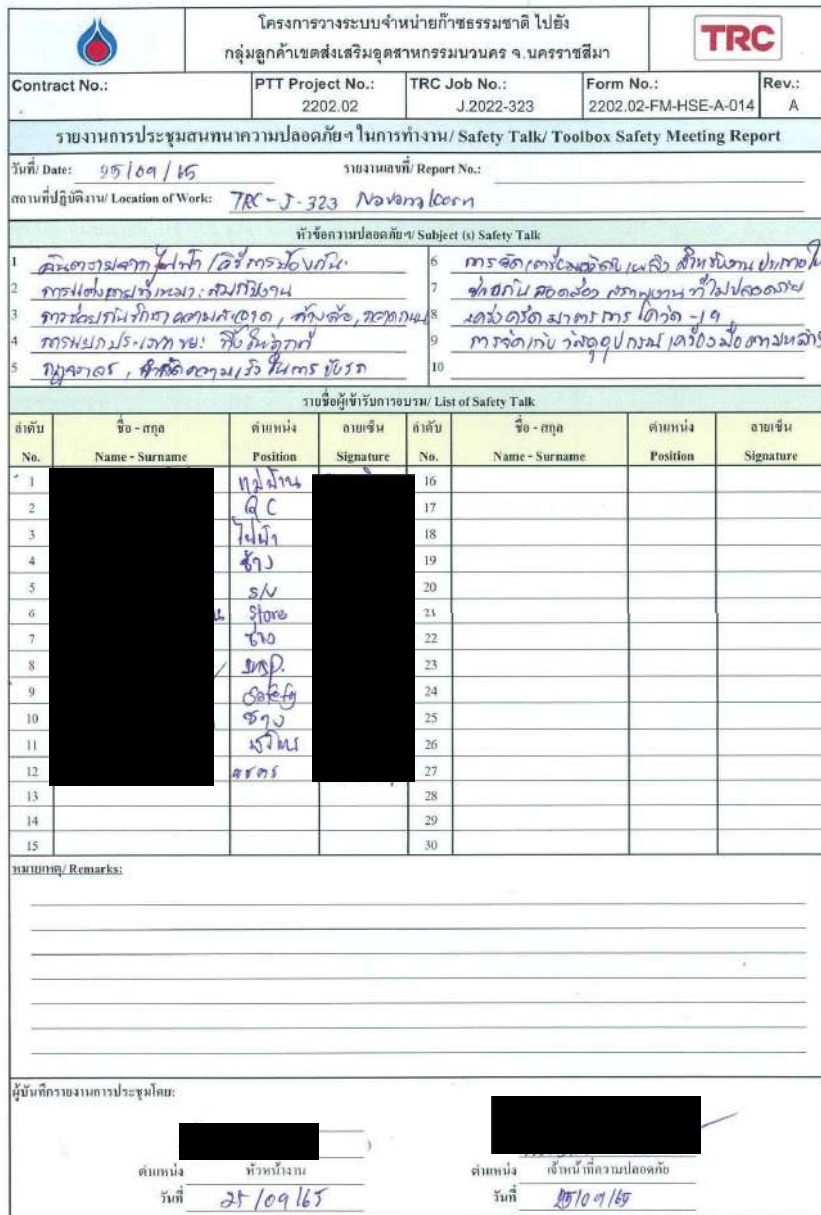 โครงการวางระบบจำหน่ายก๊าซธรรมชาติ ไปยัง
กลุ่มลูกค้าเขตส่งเสริมอุตสาหกรรมนวนคร จ.นครราชสีมา
TRC
Contract No.:
PTT Project No.:
2202.02
TRC Job No.:
J.2022-323
Form No.:
2202.02-FM-HSE-A-014
Rev.:
A
รายงานการประชุมสนทนาความปลอดภัยฯ ในการทำงาน/ Safety Talk/ Toolbox Safety Meeting Report
วันที่/ Date: 25/09/65 รายงานเลขที่/ Report No.:
สถานที่ปฏิบัติงาน/ Location of Work: TRC-J-323
หัวข้อความปลอดภัยฯ/ Subject (s) Safety Talk
1 อันตรายจากไฟฟ้า /วิธีการป้องกัน
2 การแต่งกายที่เหมาะสมกับงาน
3 การช่วยกันรักษาความสะอาด, ล้างล้อ,
4 การแยกประเภทขยะ ทิ้งให้ถูกที่
5 กฎจราจร, จำกัดความเร็วในการขับรถ
6 การจัดเตรียมถังดับเพลิง สำหรับงาน
7 ช่วยกันสอดส่อง สภาพงานที่ไม่ปลอดภัย
8 เคร่งครัดมาตรการโควิด-19
9 การจัดเก็บวัสดุอุปกรณ์ เครื่องมือ
10
รายชื่อผู้เข้ารับการอบรม/ List of Safety Talk
ลำดับ ชื่อ - สกุล ตำแหน่ง ลายเซ็น ลำดับ ชื่อ - สกุล ตำแหน่ง ลายเซ็น
No. Name - Surname Position Signature No. Name - Surname Position Signature
1 แม่บ้าน 16
2 QC 17
3 ไฟฟ้า 18
4 ช่าง 19
5 S/V 20
6 Store 21
7 ช่าง 22
8 23
9 Safety 24
10 ช่าง 25
11 26
12 27
13 28
14 29
15 30
หมายเหตุ/ Remarks:
ผู้บันทึกรายงานการประชุมโดย:
ตำแหน่ง หัวหน้างาน ตำแหน่ง เจ้าหน้าที่ความปลอดภัย
วันที่ 25/09/65 วันที่ 25/09/65